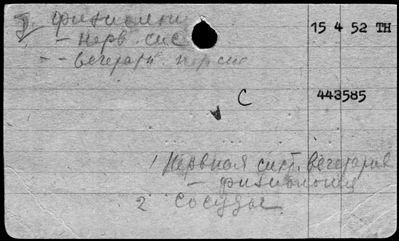 I физиолог
15 4 52 TH
- нерв. сис
- - вегетат. нерв. сис
C 443585
1 Нервная сист. вегетатив
- физиология
2 сосуды